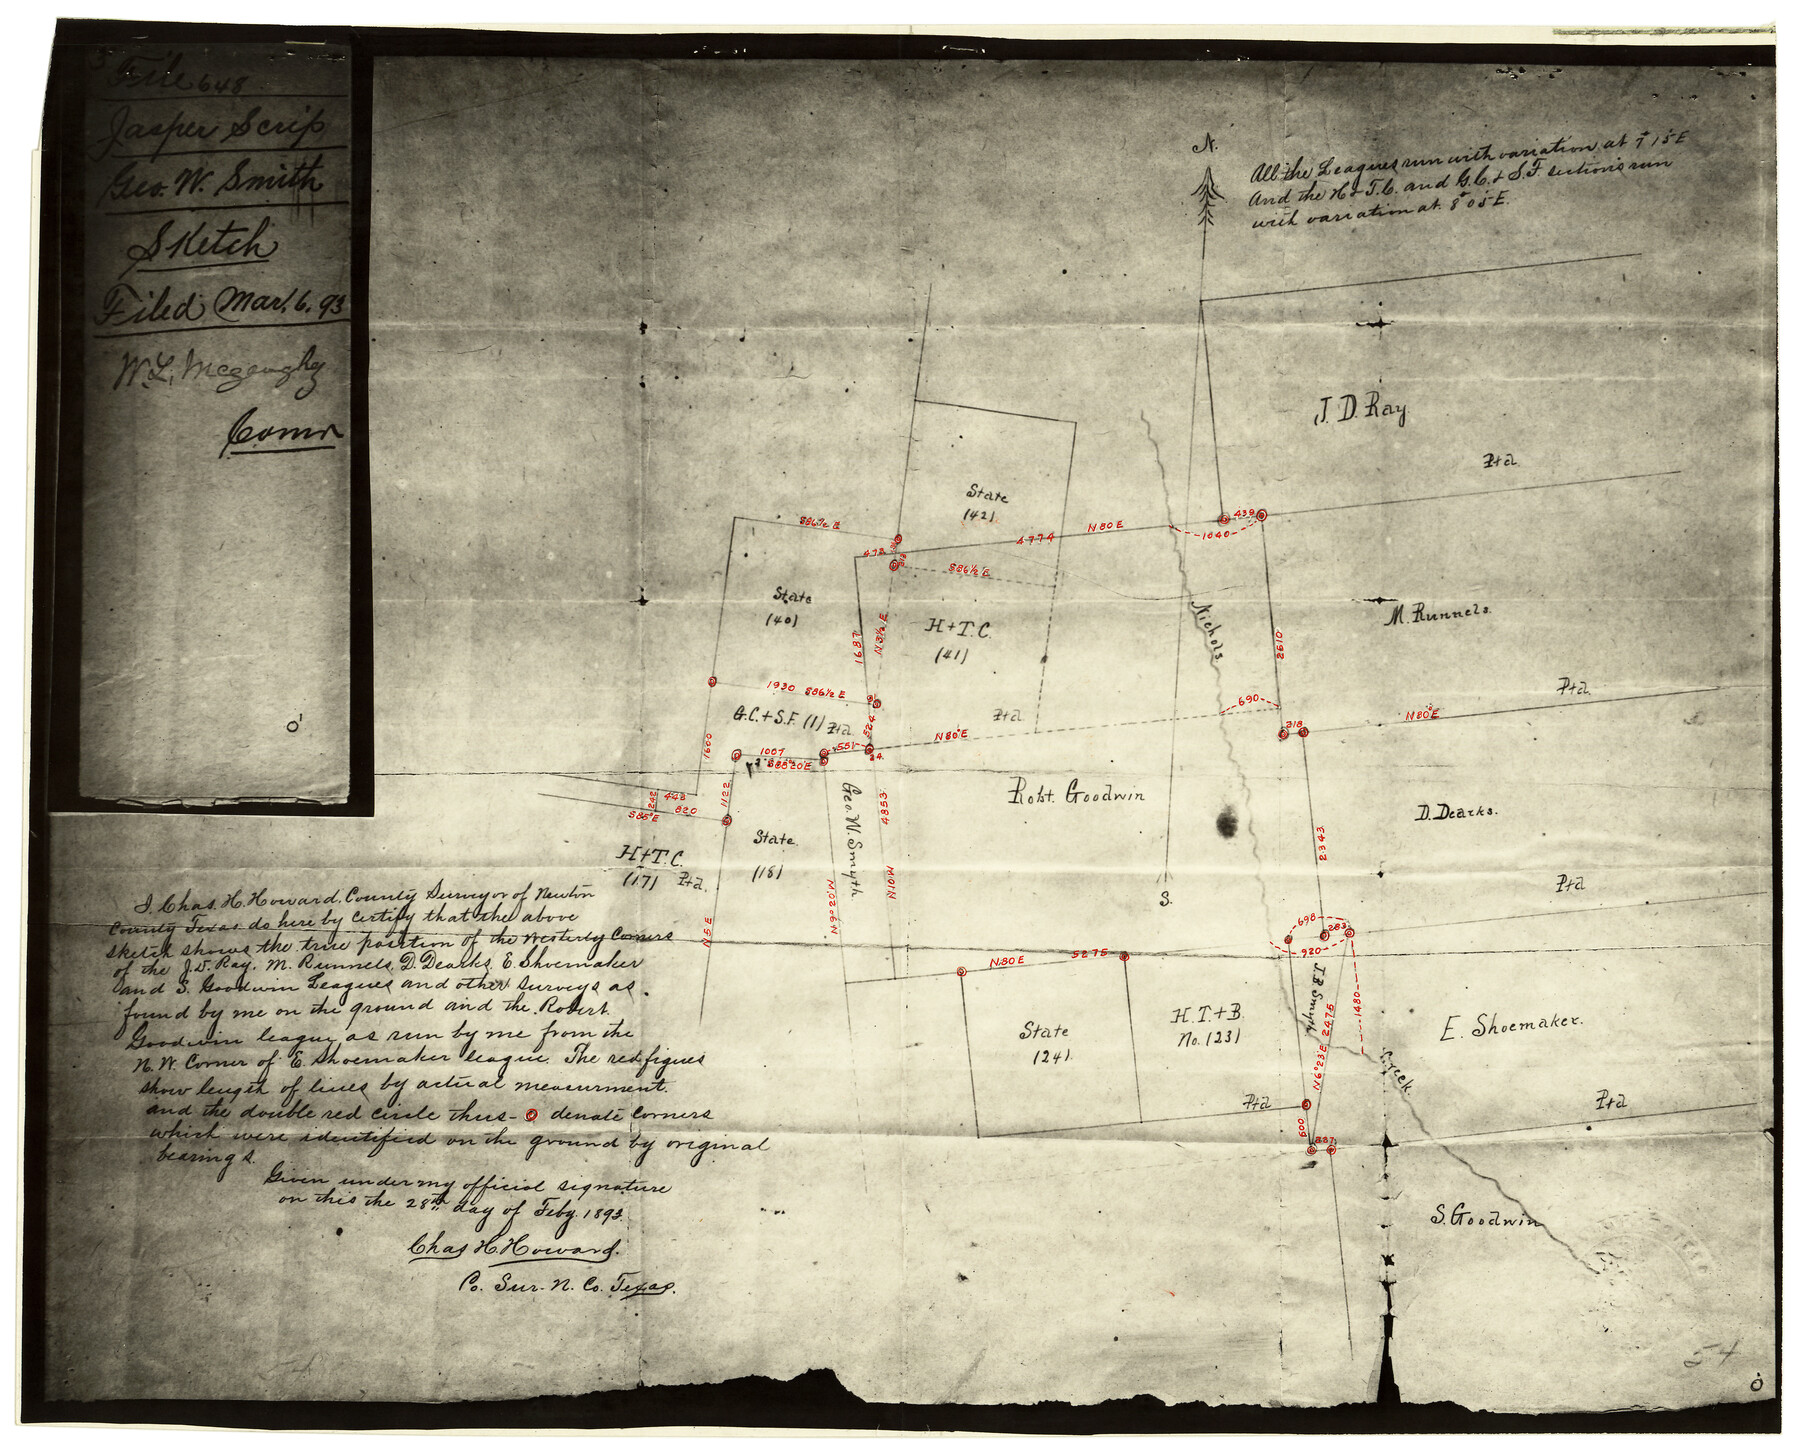 File 648
Jasper Scrip
Geo. W. Smith
Sketch
Filed Mar. 6, 93
W. L. McGaughey
Comr
N.
All the Leagues run with variation at 7°15'E
And the H+T.C. and G.C.+S.F. sections run
with variation at 8°05'E.
J. D. Ray
Ptd
State
(42)
S86½E
N80E
4774
439
1040
472
S86½E
State
(40)
H+T.C.
(41)
1687
N3½E
Nichols
M. Runnels.
2610
1930 S86½E
G.C.+S.F. (1) Ptd
524
Ptd
690
Ptd.
N80°E
N80°E
318
1600
1007
S85 20'E
551
24
1122
242
448
820
S85°E
Geo. W. Smyth
4853
Robt. Goodwin
D. Dearks.
2343
State
(18)
H+T.C.
(17) Ptd.
N5E
N9°20'W
N10W
S.
Ptd
698
283
920
N80E
5275
J.B. Smyth
1480
State
(24)
H.T.+B.
No. (23)
E. Shoemaker.
N6°23'E 2476
Creek
Ptd
Ptd
600
327
S. Goodwin
I. Chas. H. Howard. County Surveyor of Newton
County Texas do here by certify that the above
sketch shows the true position of the Westerly Corners
of the J.D. Ray, M. Runnels, D. Dearks, E. Shoemaker
and S. Goodwin Leagues and other surveys as
found by me on the ground and the Robert
Goodwin league as run by me from the
N.W. Corner of E. Shoemaker league. The red figues
show length of lines by actual measurment.
and the double red circle thus - denate corners
which were identified on the ground by original
bearings.
Given under my official signature
on this the 28th day of Feby. 1893.
Chas H. Howard.
Co. Sur. N. Co. Texas.
54